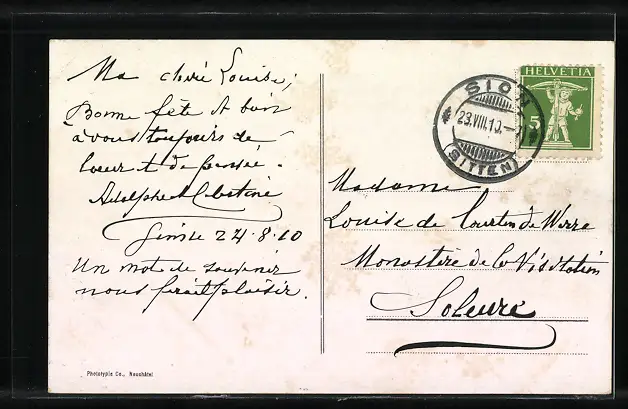 Ma chère Louise,
Bonne fête et bien
à vous toujours de
coeur et de pensée.
Adolphe et Célestine
24.8.10
Un mot de souvenir
nous ferait plaisir.
Phototypie Co., Neuchâtel
HELVETIA
5
SION
23.VIII.10.
(SITTEN)
Madame
Louise de Courten de Werra
Monastère de la Visitation
Soleure